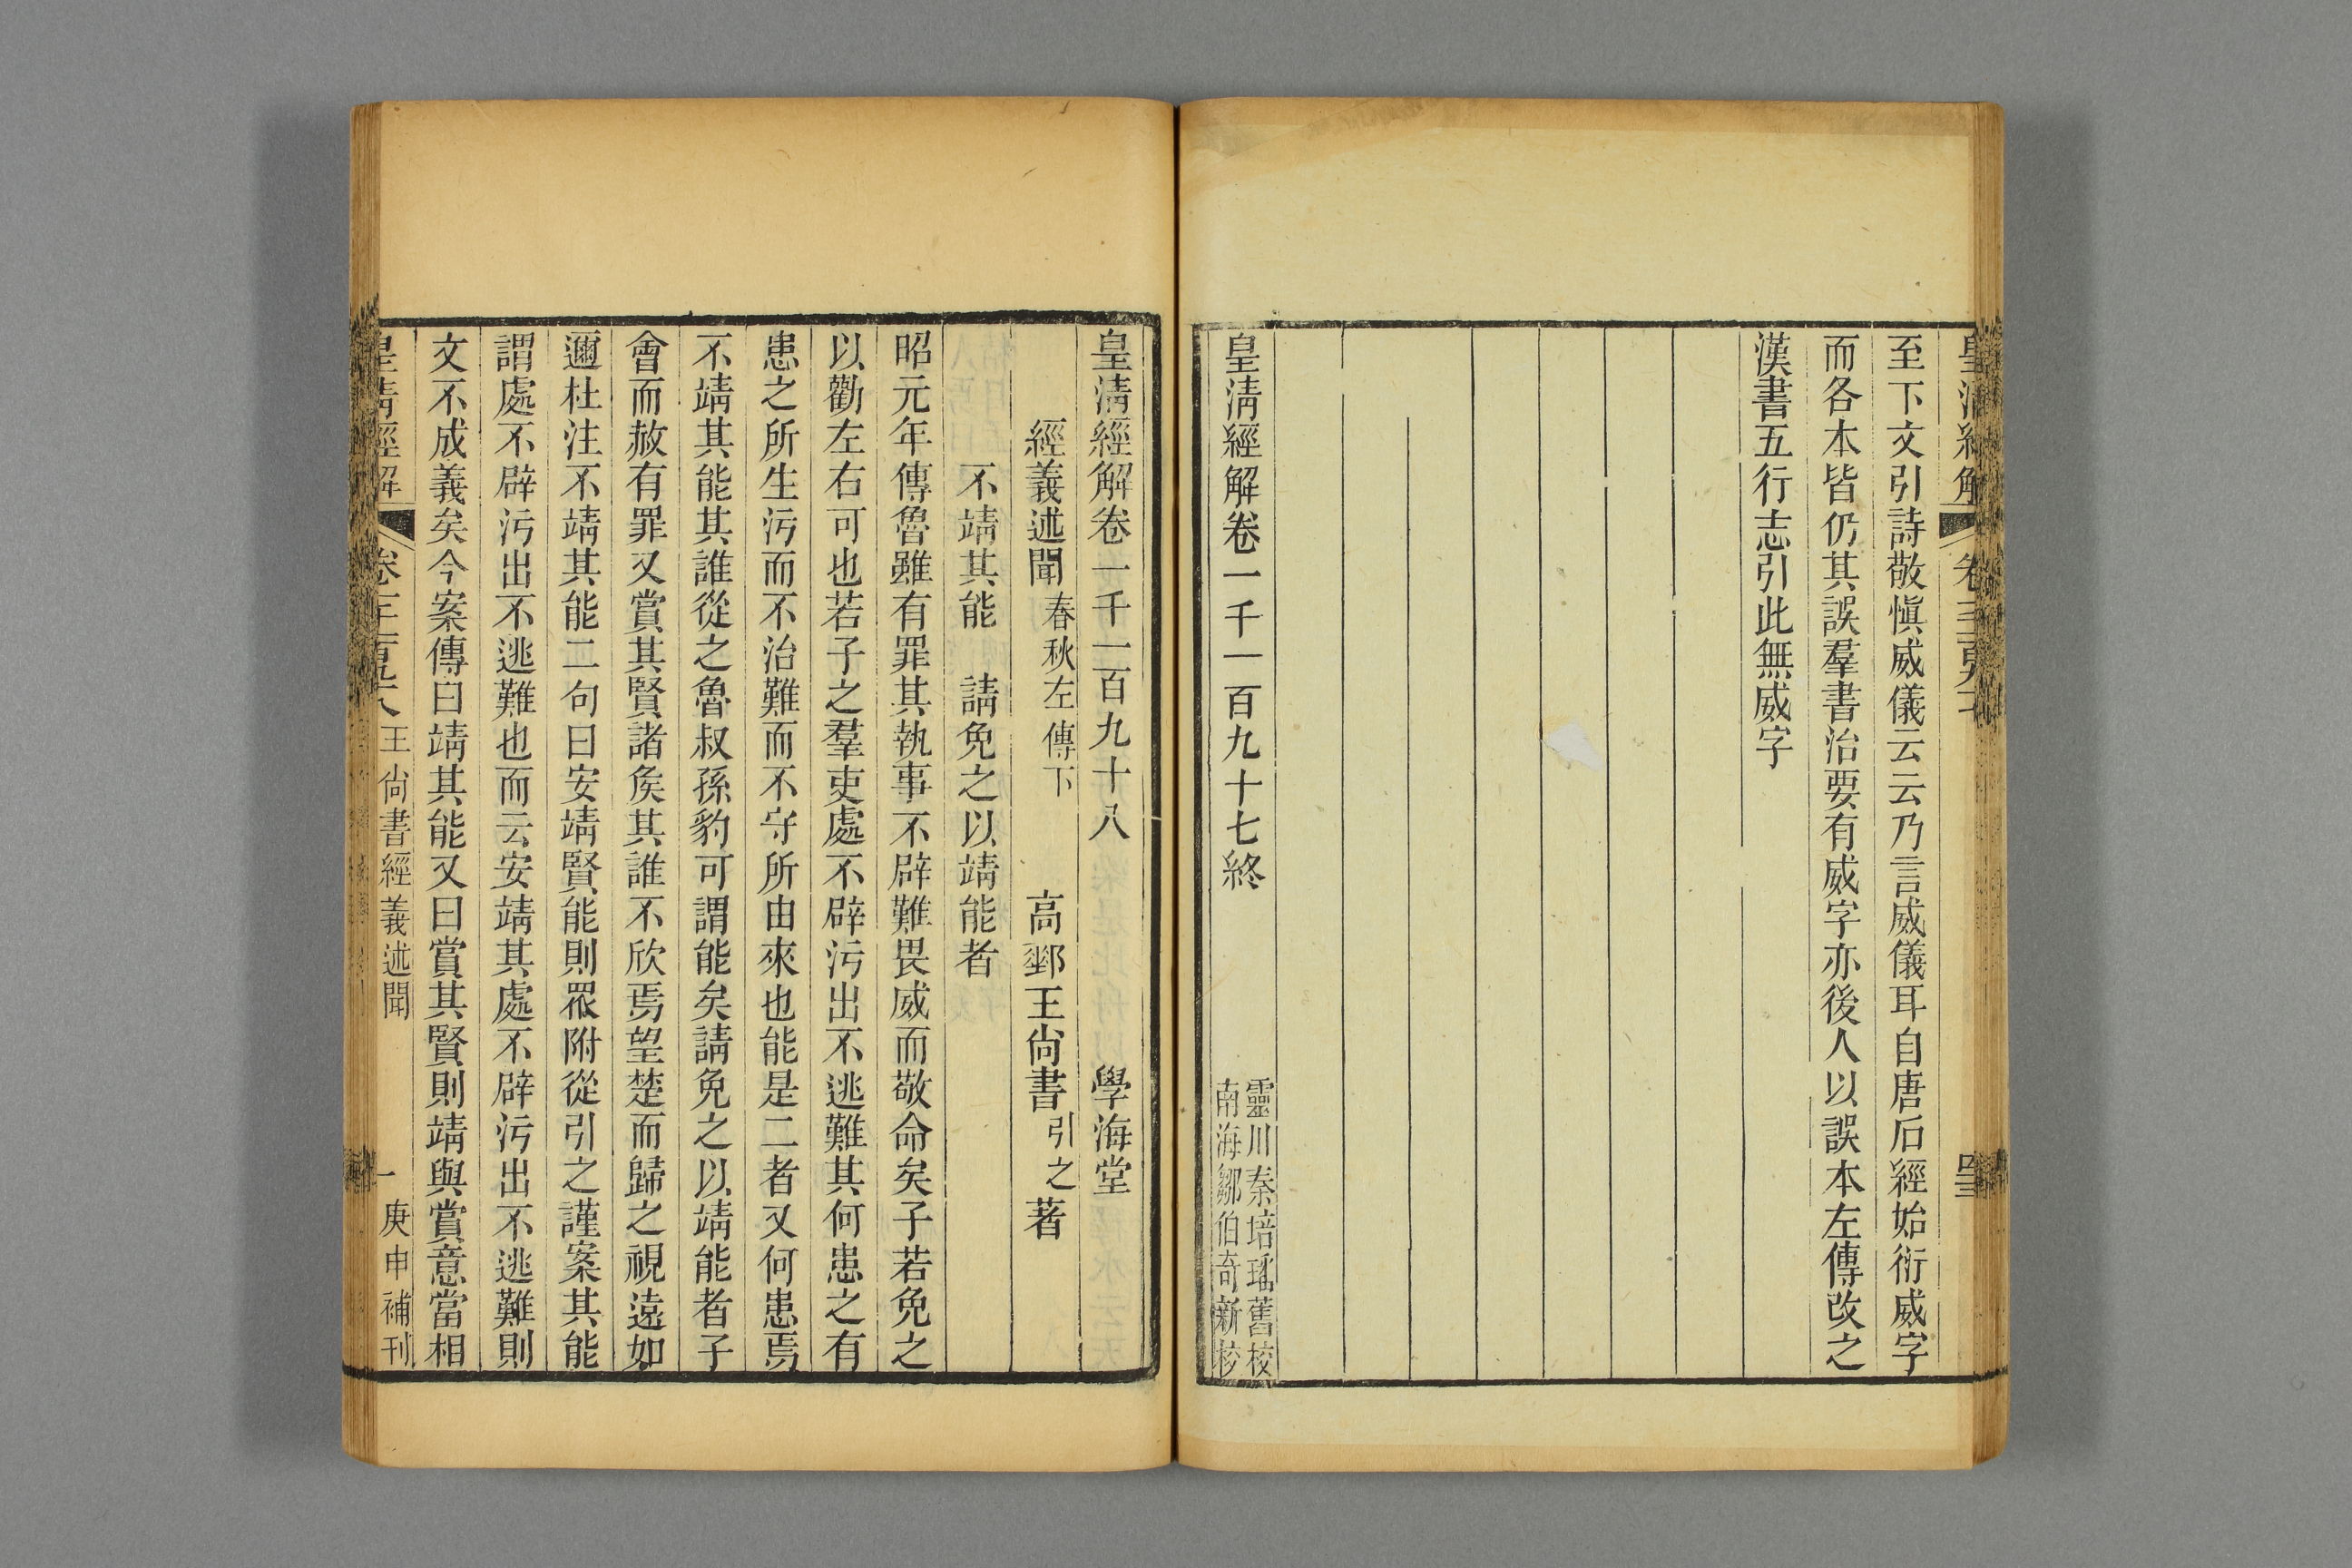 至下文引詩敬愼威儀云云乃言威儀耳自唐石經始衍威字
而各本皆仍其誤羣書治要有威字亦後人以誤本左傳改之
漢書五行志引此無威字
皇淸經解卷一千一百九十七終
靈川秦培璠舊校
南海鄒伯奇新校
皇淸經解卷一千一百九十八
學海堂
經義述聞 春秋左傳下
高郵王尙書引之著
不靖其能 請免之以靖能者
昭元年傳魯雖有罪其執事不辟難畏威而敬命矣子若免之
以勸左右可也若子之羣吏處不辟污出不逃難其何患之有
患之所生污而不治難而不守所由來也能是二者又何患焉
不靖其能其誰從之魯叔孫豹可謂能矣請免之以靖能者子
會而赦有罪又賞其賢諸矦其誰不欣焉望楚而歸之視遠如
邇杜注不靖其能二句曰安靖賢能則眾附從引之謹案其能
謂處不辟污出不逃難也而云安靖其處不辟污出不逃難則
文不成義矣今案傳曰靖其能又曰賞其賢則靖與賞意當相
皇淸經解 王尙書經義述聞 一 庚申補刊